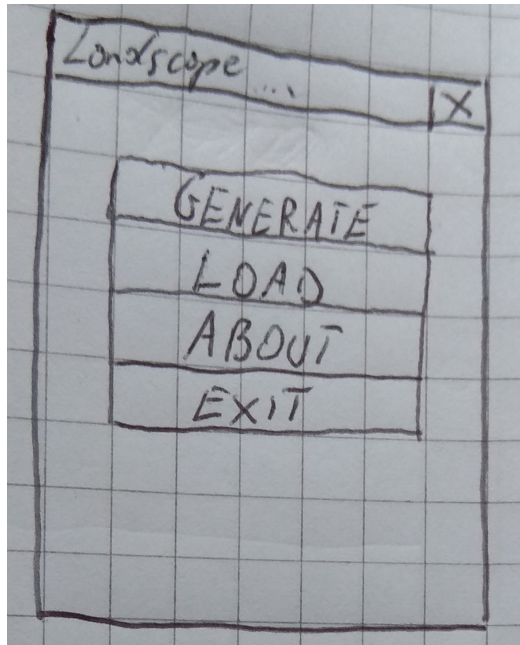 Londscope...
X
GENERATE
LOAD
ABOUT
EXIT